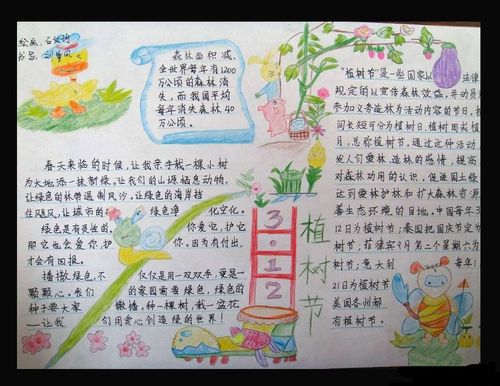 绘画:石俊
书写:刘
森林面积减,
全世界每年有1200
万公顷的森林消
失,而我国平均
每年消失森林40
万公顷。
春天来临的时候,让我亲手栽一棵小树
为大地添一抹新绿,让我们的山源栖息动物,
让绿色的林带遏制风沙,让绿色的海岸挡
住飓风,让城市的 绿色净化空气。
绿色是有灵性的, 你爱它,护它
那它也会爱你,护 你。因为有付出,
才会有回报。
播撒绿色,不 仅仅是用一双双手,更是一
颗颗心。我们 的家园需要绿色,绿色的
种子要大家 撒播,种一棵树,栽一盆花
——让我 们用爱心创造绿的世界!
3·12
植树节
“植树节”是一些国家以法律
规定的以宣传森林效益,并动员
参加义务造林为活动内容的节日,按
间长短可分为植树日、植树周或植
月,总称植树节。通过这种活动,
发人们爱林、造林的感情,提高
对森林功用的认识,促进国土绿
达到爱林护林和扩大森林资源
善生态环境的目地。中国每年3
12日为植树节;泰国把国庆节定为
树节;菲律宾9月第二个星期六为
树节;意大利 每年1
21日为植树节
美国各州都
有植树节。